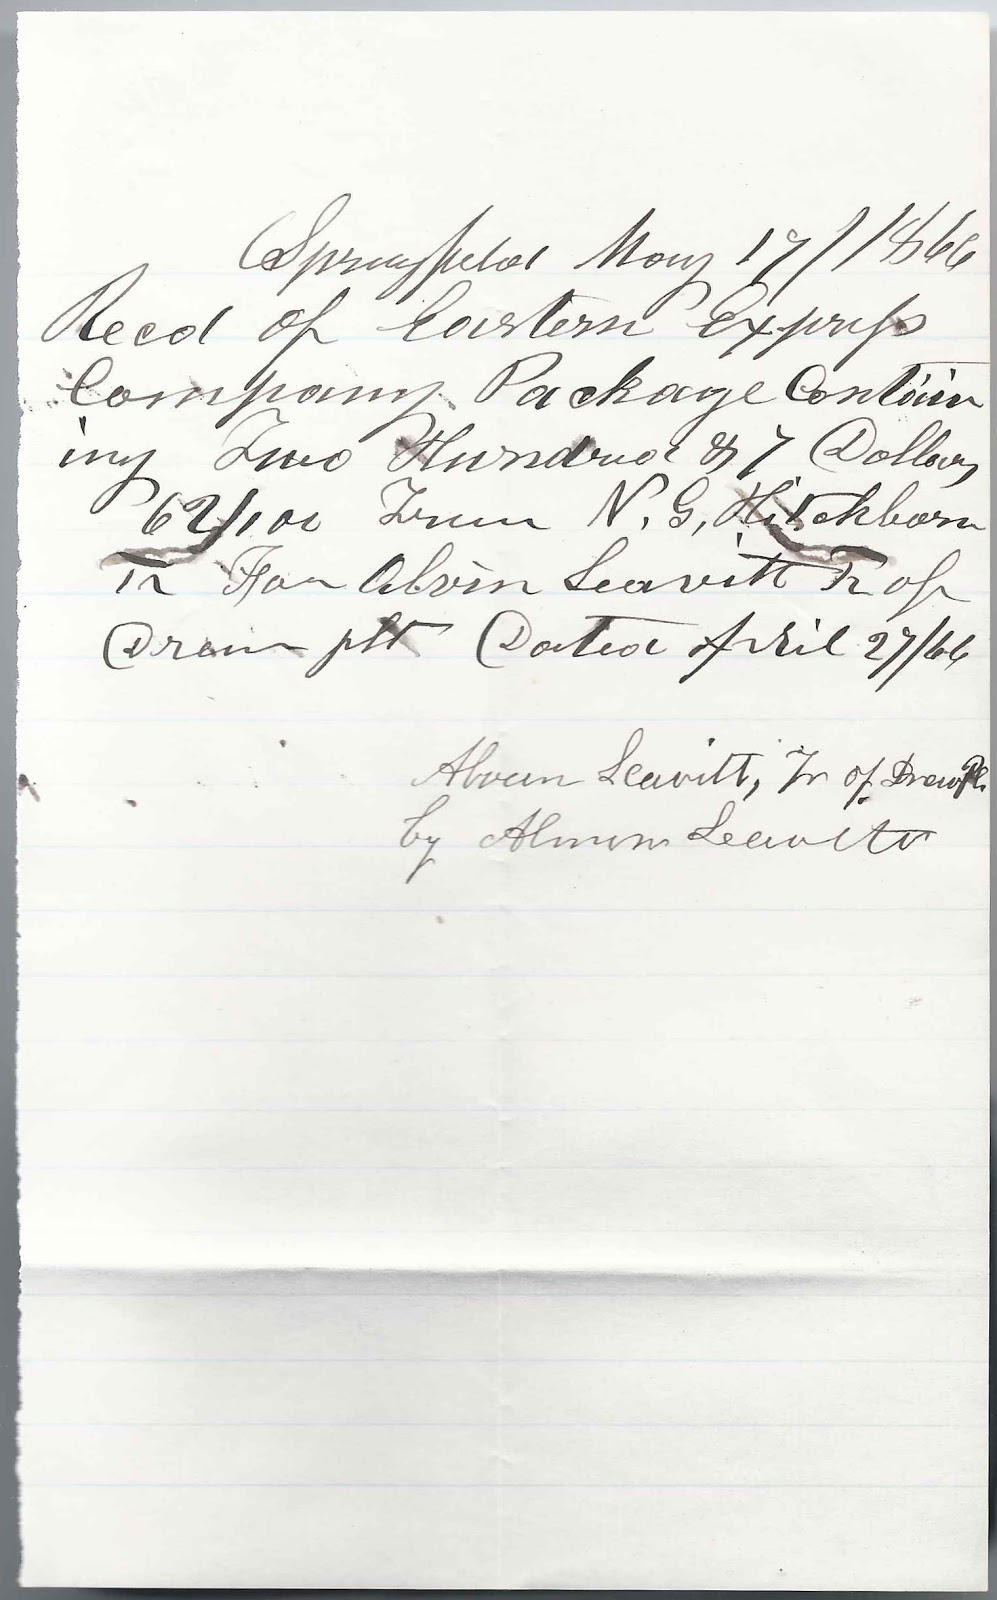 Springfield May 17/ 1866
Recd of Eastern Express
Company Package Contain
ing Two Hundred & 7 Dollars
62/100 From N. G. Hitchborn
Tr For Alvin Leavitt Tr of
Drew plt Dated April 27/66
Alvin Leavitt, Tr of Drew Pl.
by Almon Leavitt